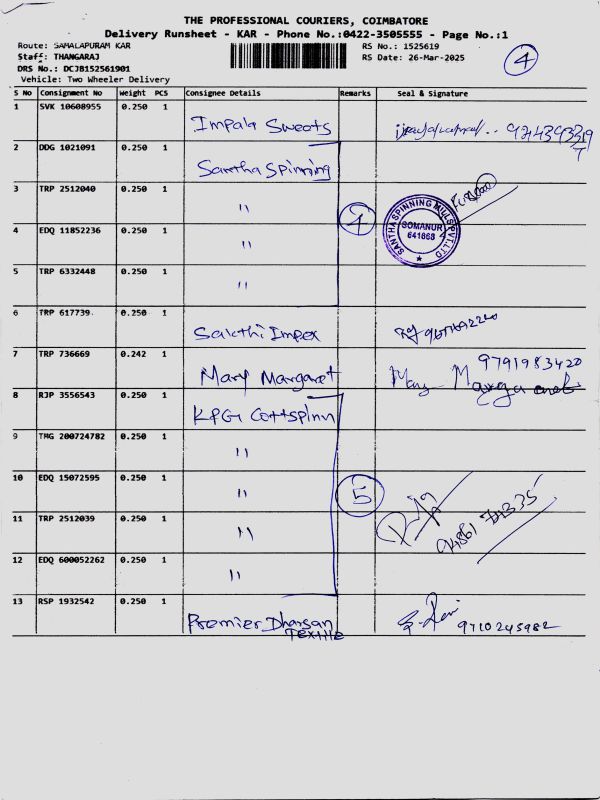 THE PROFESSIONAL COURIERS, COIMBATORE
Delivery Runsheet - KAR - Phone No.:0422-3505555 - Page No.:1
Route: SAMALAPURAM KAR RS No.: 1525619
Staff: THANGARAJ RS Date: 26-Mar-2025
DRS No.: DCJB152561901
Vehicle: Two Wheeler Delivery
4
S No Consignment No Weight PCS Consignee Details Remarks Seal & Signature
1 SVK 10608955 0.250 1 Impala Sweets
2 DDG 1021091 0.250 1 Santha Spinning
3 TRP 2512040 0.250 1 "
4
SANTHA SPINNING MILLS PVT.LTD
SOMANUR
641668
4 EDQ 11852236 0.250 1 "
5 TRP 6332448 0.250 1 "
6 TRP 617739 0.250 1 Sakthi Impex
7 TRP 736669 0.242 1 Mary Margaret 9791983420
Mary Margaret
8 RJP 3556543 0.250 1 KPG Cottspinn
9 TMG 200724782 0.250 1 "
10 EDQ 15072595 0.250 1 " 5
11 TRP 2512039 0.250 1 "
94861 74335
12 EDQ 600052262 0.250 1 "
13 RSP 1932542 0.250 1 Premier Dharsan
Textile 9710245982